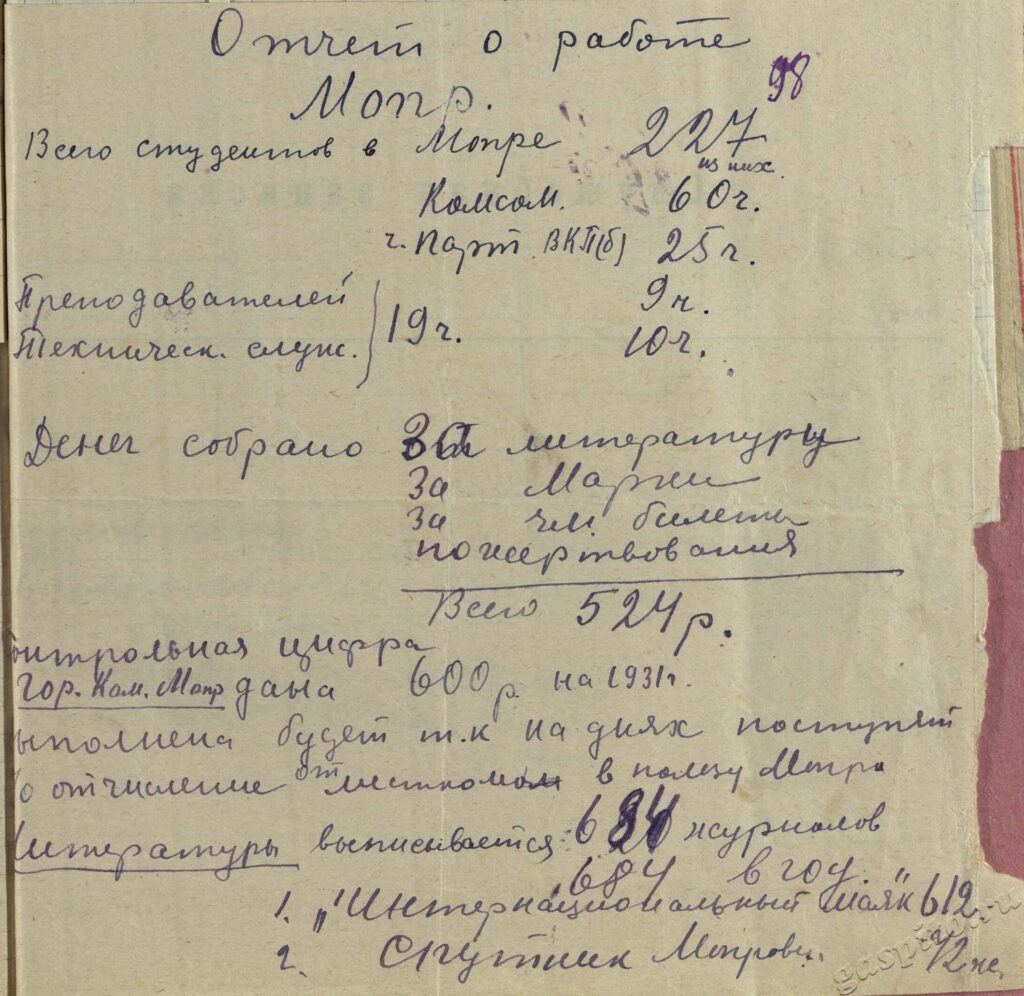 Отчет о работе
98
Мопр.
Всего студентов в Мопре 227
из них
Комсом. 60ч.
ч. парт. ВКП(б) 25ч.
Преподавателей 9ч.
Техническ. служ. 19ч. 10ч.
Денег собрано за литературу
За Марки
За чл. билеты
пожертвования
Всего 524 р.
онтрольная цифра
гор. Ком. Мопр дана 600р на 1931г.
ыполнена будет т.к на днях поступят
отчисление от месткома в пользу Мопра
Литературы выписывается: 684 журналов
684 в год.
1. „Интернациональный маяк" 612
2. Спутник Мопровц.